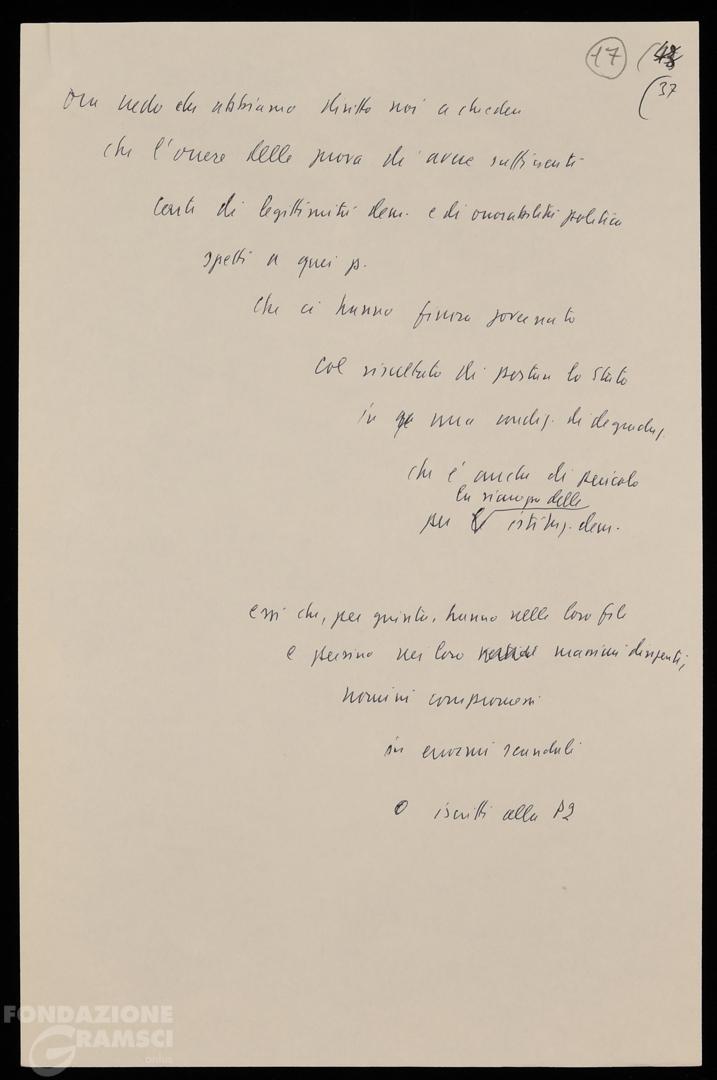 17 (43
(37
Ora vedo che abbiamo diritto noi a chiedere
che l'onere della prova di avere sufficienti
conti di legittimità dem. e di onorabilità politica
spetti a quei p.
che ci hanno finora governato
col risultato di portare lo Stato
in una condiz. di degradaz.
che è anche di pericolo
la sicurezza delle
per istituz. dem.
essi che, per giunta, hanno nelle loro file
e persino nei loro massimi dirigenti,
uomini compromessi
in enormi scandali
o iscritti alla P2
FONDAZIONE
GRAMSCI
onlus